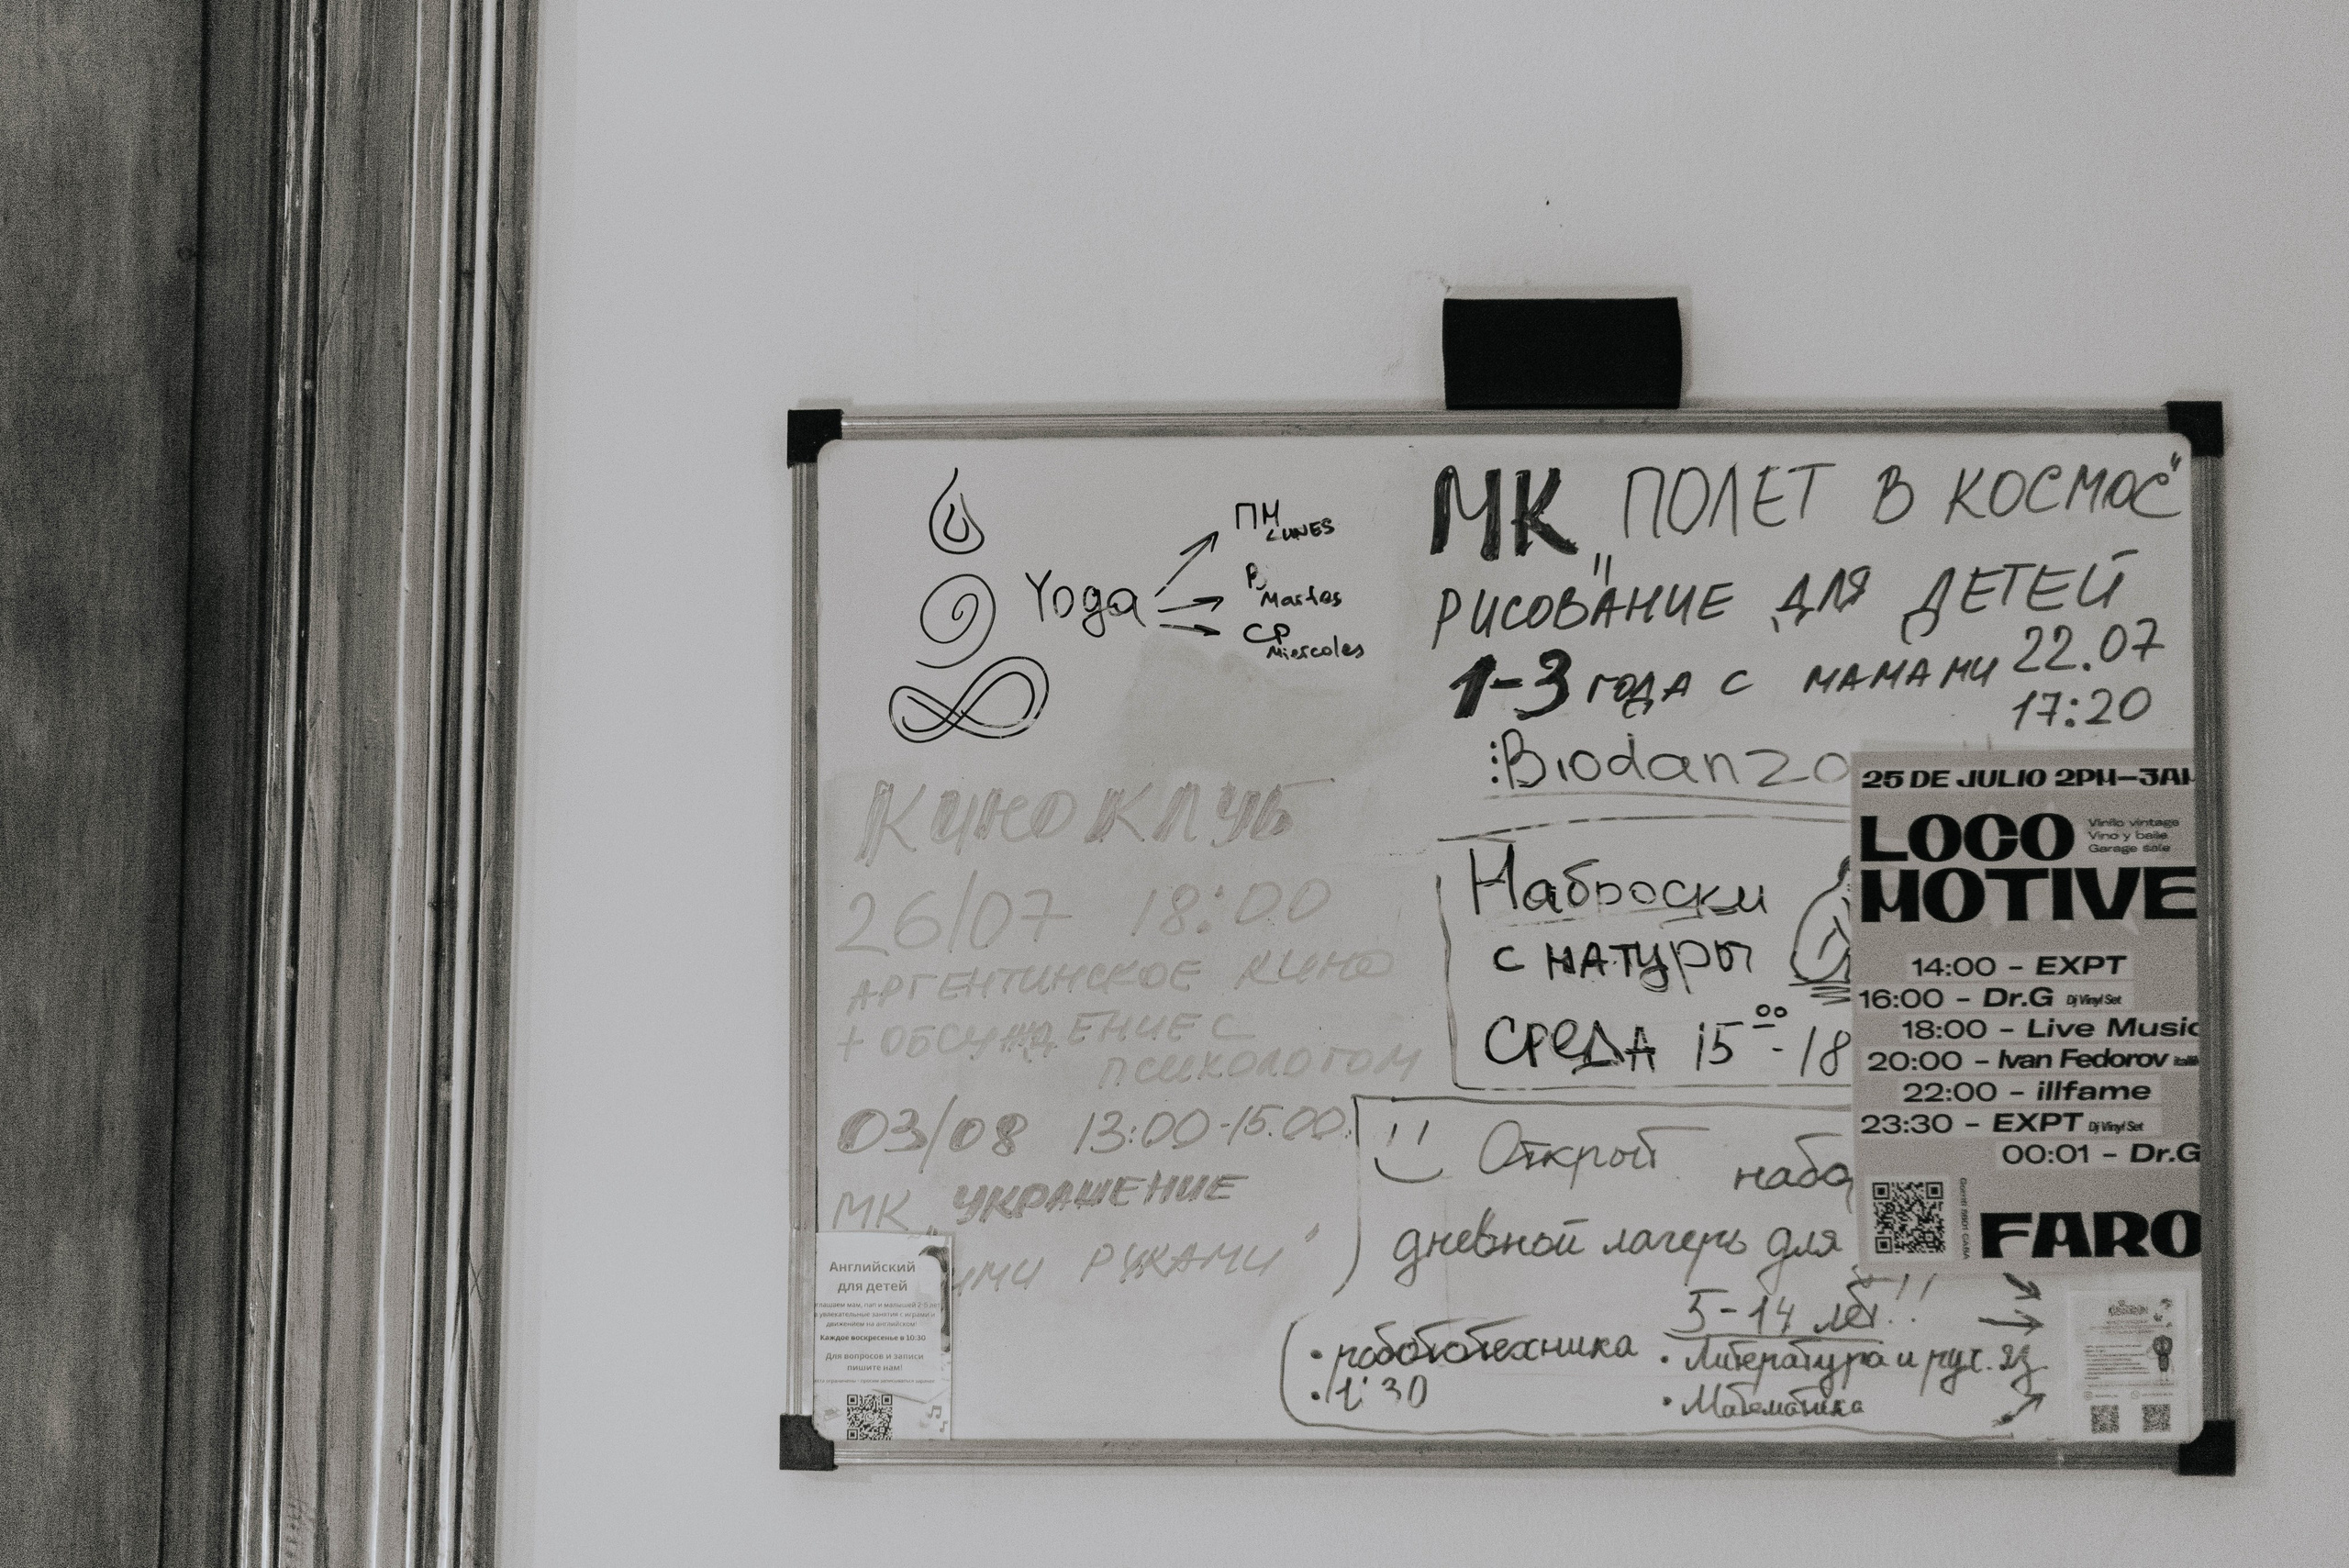 Yoga
ПН
LUNES
В
Martes
СР
Miercoles
КИНОКЛУБ
26/07 18:00
АРГЕНТИНСКОЕ КИНО
+ ОБСУЖДЕНИЕ С
ПСИХОЛОГОМ
03/08 13:00-15.00
МК „УКРАШЕНИЕ
ИМИ РУКАМИ"
Английский
для детей
движением на английском
Каждое воскресенье в 10:30
Для вопросов и записи
пишите нам!
МК „ПОЛЕТ В КОСМОС"
РИСОВАНИЕ ДЛЯ ДЕТЕЙ
1-3 ГОДА С МАМАМИ 22.07
17:20
Biodanza
Наброски
с натуры
СРЕДА 15⁰⁰-18
Открыт набо
дневной лагерь для
5-14 лет!!
• робототехника
• 1:30
• Литература и рус. яз
• Математика
25 DE JULIO 2PM–3AM
LOCO
MOTIVE
Vinilo vintage
Vino y baile
Garage sale
14:00 – EXPT
16:00 – Dr.G Dj Vinyl Set
18:00 – Live Music
20:00 – Ivan Fedorov
22:00 – illfame
23:30 – EXPT Dj Vinyl Set
00:01 – Dr.G
FARO